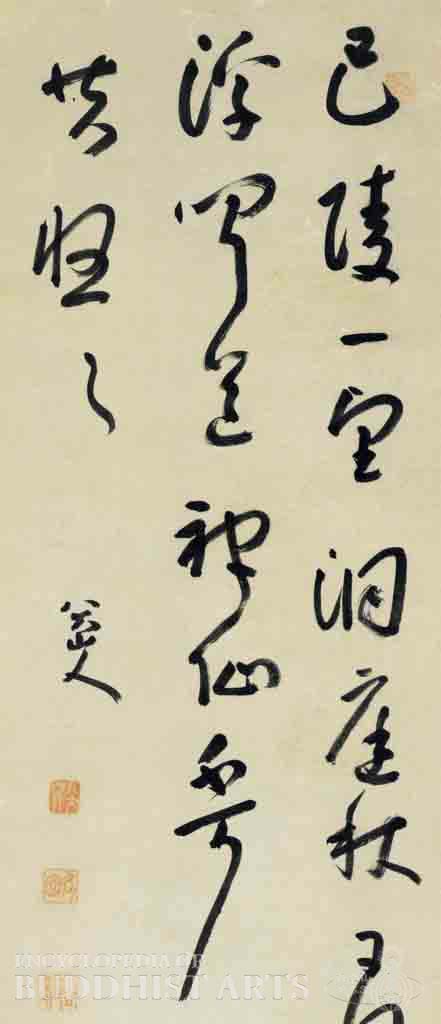 巴陵一望洞庭秋日
浮聞道神仙不可
共悠々
八大山人
ENCYCLOPEDIA OF
BUDDHIST ARTS